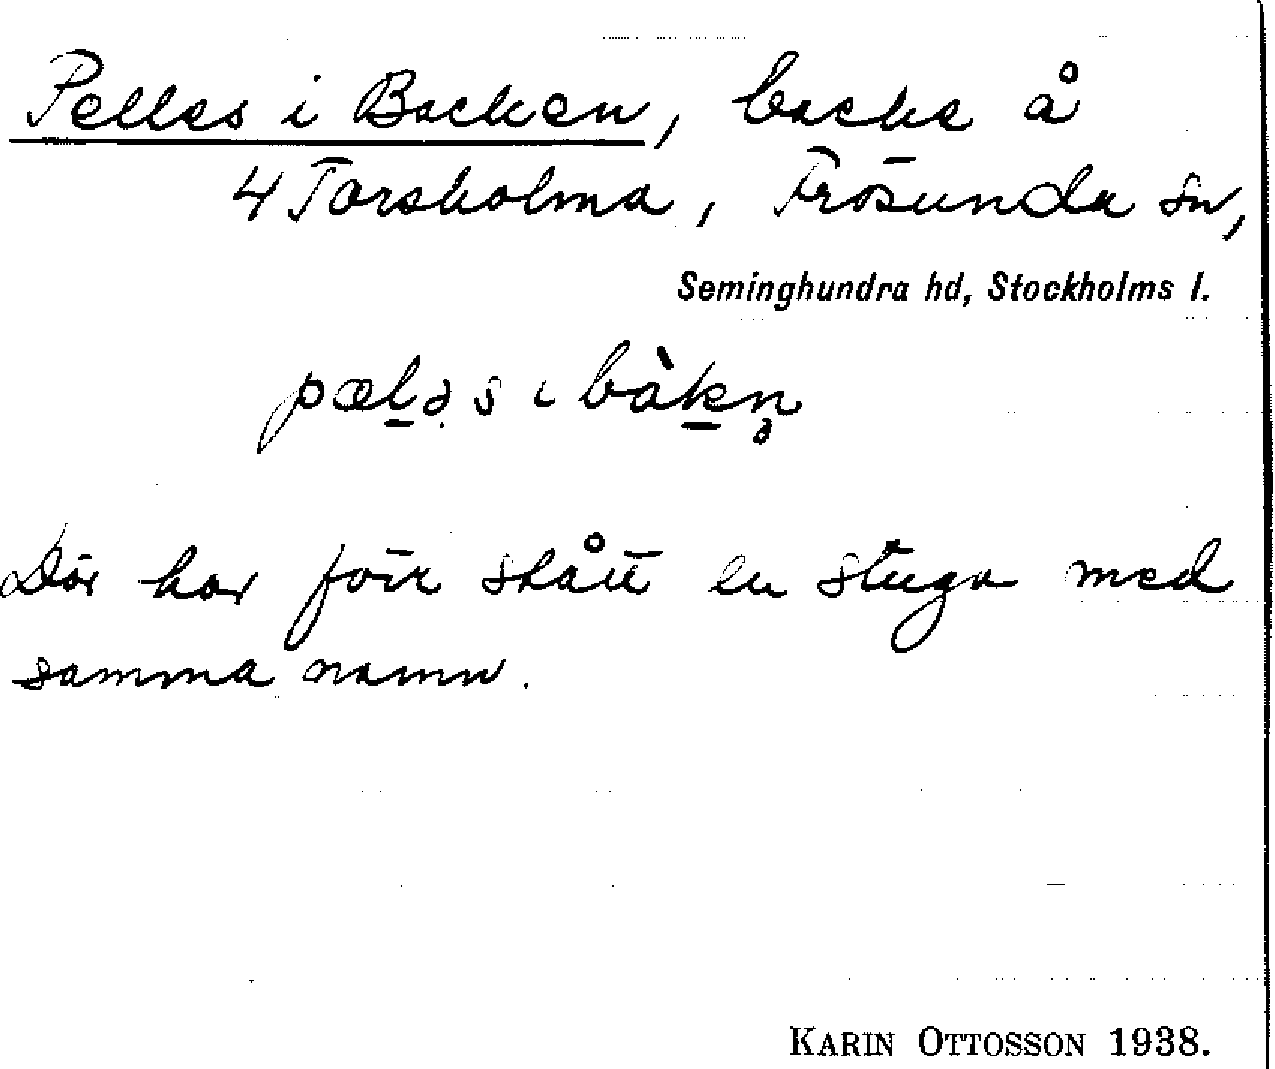 Pelles i Backen, backe å
4 Torsholma, Frösunda sn,
Seminghundra hd, Stockholms l.
pæl̲əs i bàk̲n̥
Där har förr stått en stuga med
samma namn.
KARIN OTTOSSON 1938.